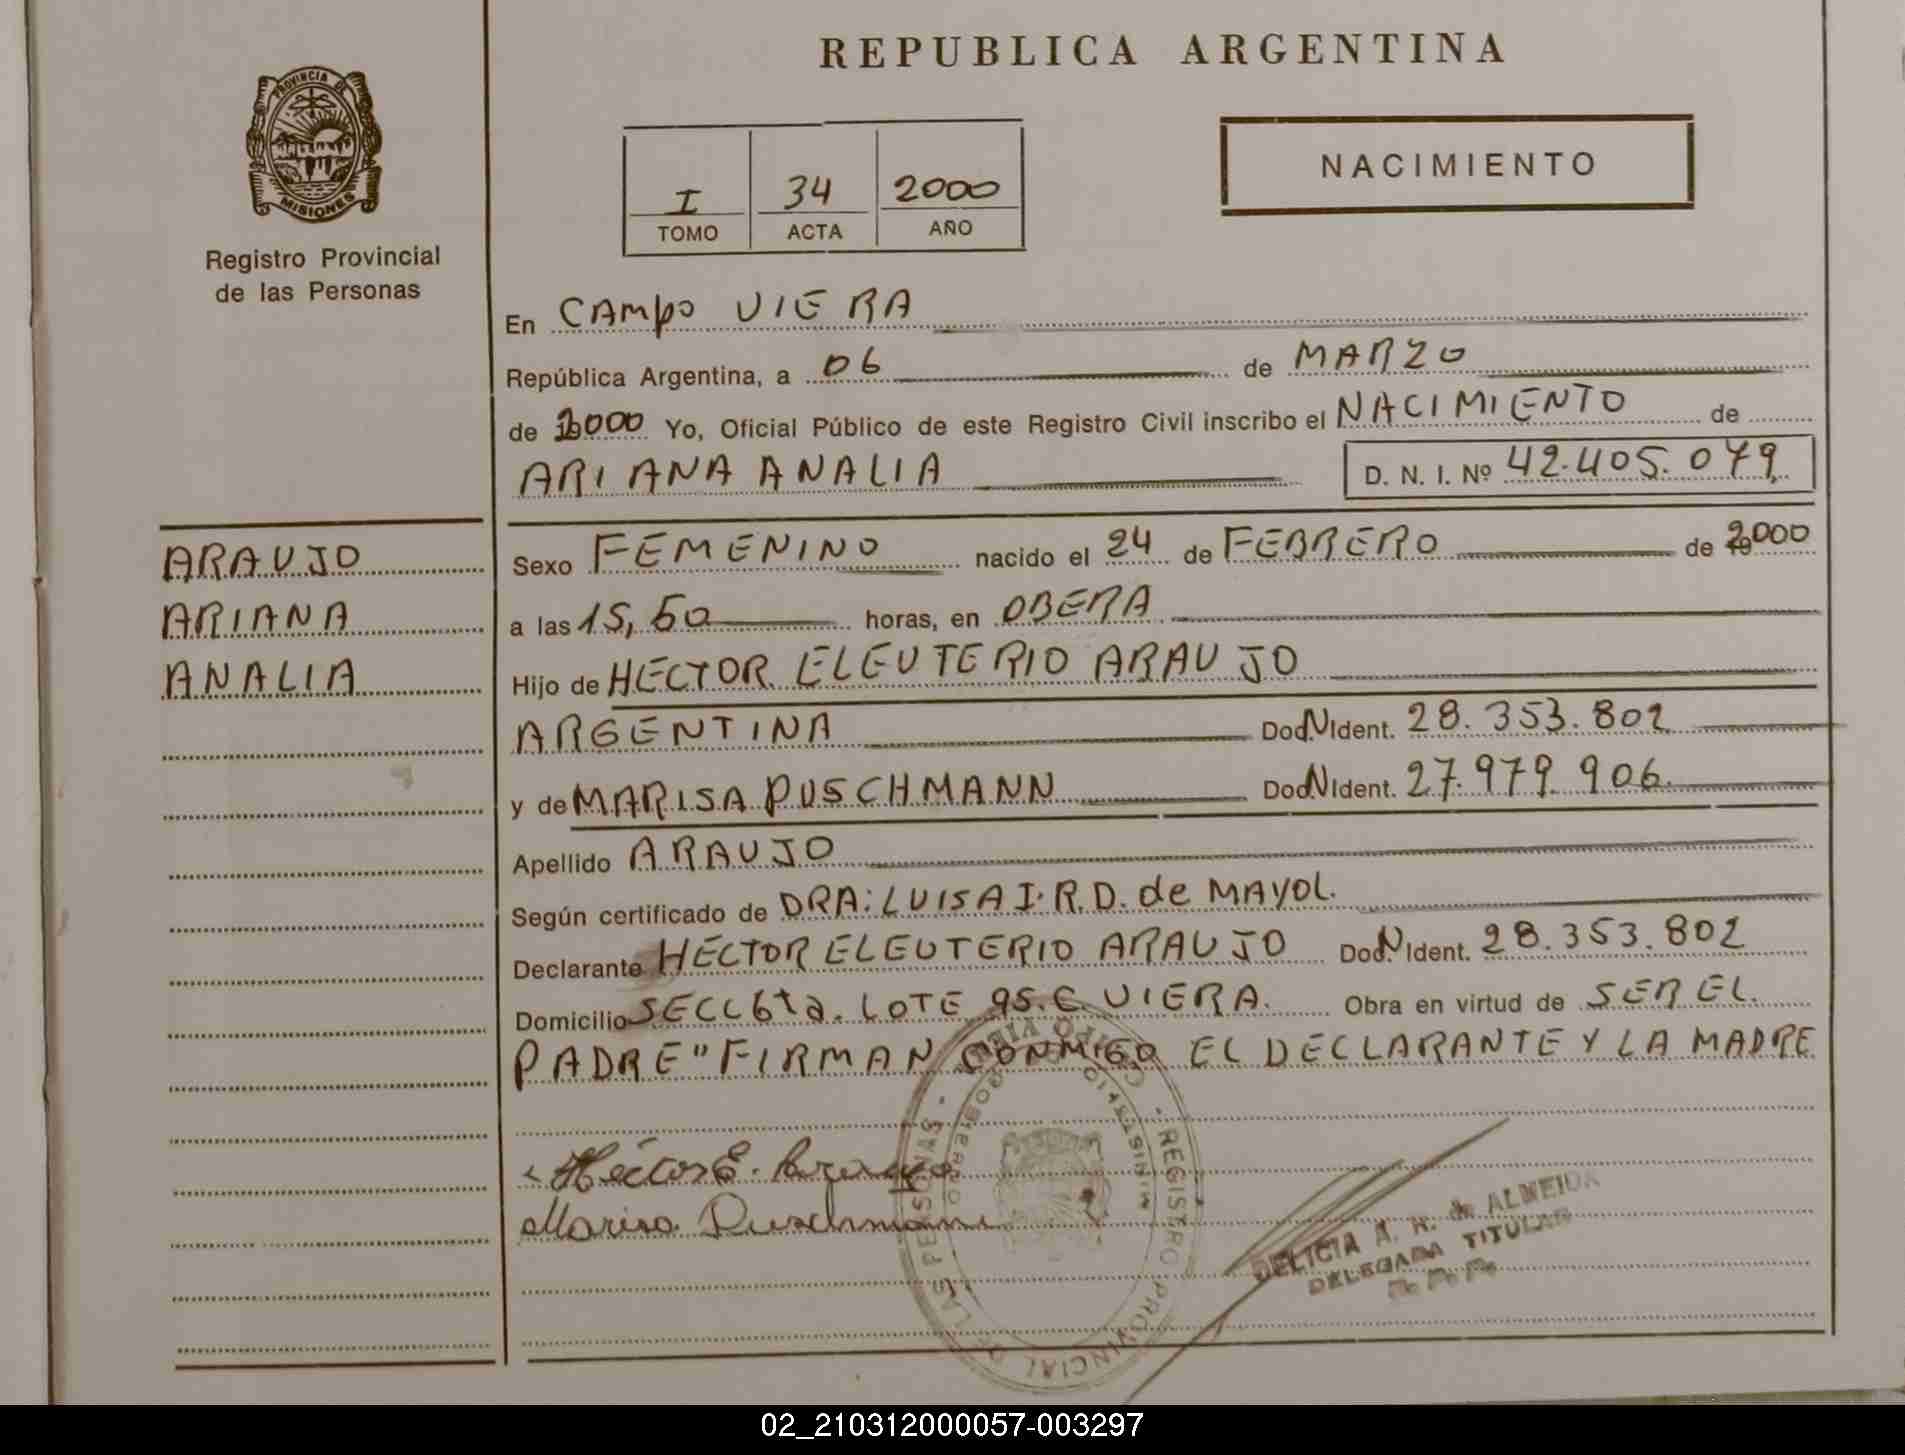 REPUBLICA ARGENTINA
PROVINCIA DE
MISIONES
Registro Provincial
de las Personas
I 34 2000
TOMO ACTA AÑO
NACIMIENTO
En CAMPO VIERA
República Argentina, a 06 de MARZO
de 2000 Yo, Oficial Público de este Registro Civil inscribo el NACIMIENTO de
ARIANA ANALIA D. N. I. Nº 42.405.079
ARAUJO
ARIANA
ANALIA
Sexo FEMENINO nacido el 24 de FEBRERO de 2000
a las 15,50 horas, en OBERA
Hijo de HECTOR ELEUTERIO ARAUJO
ARGENTINA Doc.N Ident. 28.353.802
y de MARISA PUSCHMANN Doc.N Ident. 27.979.906
Apellido ARAUJO
Según certificado de DRA: LUISA I. R.D. de MAYOL.
Declarante HECTOR ELEUTERIO ARAUJO Doc.N Ident. 28.353.802
Domicilio SECC 6ta. LOTE 95.C. VIERA. Obra en virtud de SER EL
PADRE" FIRMAN CONMIGO EL DECLARANTE Y LA MADRE
Héctor E. Araujo
Marisa Puschmann
REGISTRO PROVINCIAL DE LAS PERSONAS - CAMPO VIERA
MINISTERIO GOBIERNO
DELICIA A. R. de ALMEIDA
DELEGADA TITULAR
02_210312000057-003297